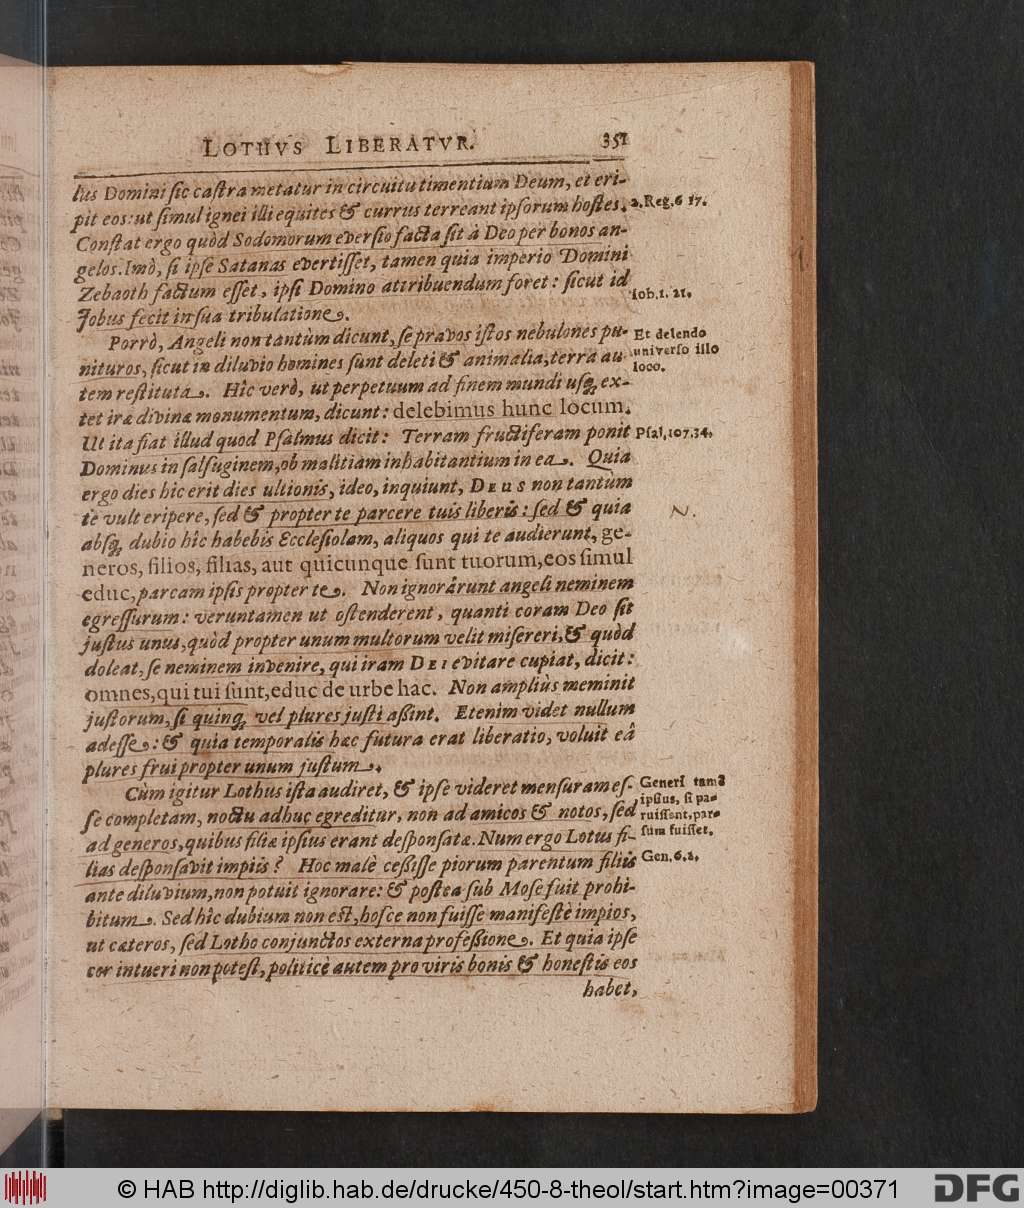 LOTHVS LIBERATVR. 351
lus Domini sic castra metatur in circuitu timentium Deum, et eri-
pit eos: ut simul ignei illi equites & currus terreant ipsorum hostes.
2. Reg. 6 17.
Constat ergo quòd Sodomorum eversio facta sit à Deo per bonos an-
gelos. Imò, si ipse Satanas evertisset, tamen quia imperio Domini
Zebaoth factum esset, ipsi Domino attribuendum foret: sicut id
Iob. 1. 21.
Jobus fecit in sua tribulatione.
Porrò, Angeli non tantùm dicunt, se pravos istos nebulones pu-
Et delendo
nituros, sicut in diluvio homines sunt deleti & animalia, terra au-
universo illo
loco.
tem restituta. Hîc verò, ut perpetuum ad finem mundi usq; ex-
tet iræ divinæ monumentum, dicunt: delebimus hunc locum.
Ut ita fiat illud quod Psalmus dicit: Terram fructiferam ponit
Psal. 107. 34.
Dominus in salsuginem, ob malitiam inhabitantium in ea. Quia
ergo dies hic erit dies ultionis, ideo, inquiunt, DEUS non tantùm
te vult eripere, sed & propter te parcere tuis liberis: sed & quia
N.
absq; dubio hîc habebis Ecclesiolam, aliquos qui te audierunt, ge-
neros, filios, filias, aut quicunque sunt tuorum, eos simul
educ, parcam ipsis propter te. Non ignorârunt angeli neminem
egressurum: veruntamen ut ostenderent, quanti coram Deo sit
justus unus, quòd propter unum multorum velit misereri, & quòd
doleat, se neminem invenire, qui iram DEI evitare cupiat, dicit:
omnes, qui tui sunt, educ de urbe hac. Non ampliùs meminit
justorum, si quinq; vel plures justi assint. Etenim videt nullum
adesse: & quia temporalis hæc futura erat liberatio, voluit eâ
plures frui propter unum justum.
Cùm igitur Lothus ista audiret, & ipse videret mensuram es-
Generi tamẽ
ipsius, si pa-
se completam, noctu adhuc egreditur, non ad amicos & notos, sed
ruissent, par-
sum fuisset.
ad generos, quibus filiæ ipsius erant desponsatæ. Num ergo Lotus fi-
lias desponsavit impiis? Hoc malè cessisse piorum parentum filiis
Gen. 6. 2.
ante diluvium, non potuit ignorare: & postea sub Mose fuit prohi-
bitum. Sed hîc dubium non est, hosce non fuisse manifestè impios,
ut cæteros, sed Lotho conjunctos externa professione. Et quia ipse
cor intueri non potest, politicè autem pro viris bonis & honestis eos
habet,
© HAB http://diglib.hab.de/drucke/450-8-theol/start.htm?image=00371
DFG